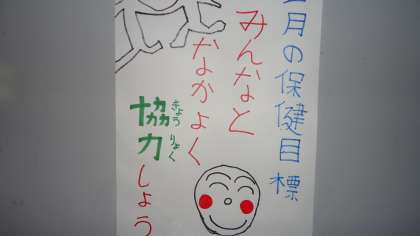 月の保健目標
みんなと
なかよく
協力しょう
きょう
りょく